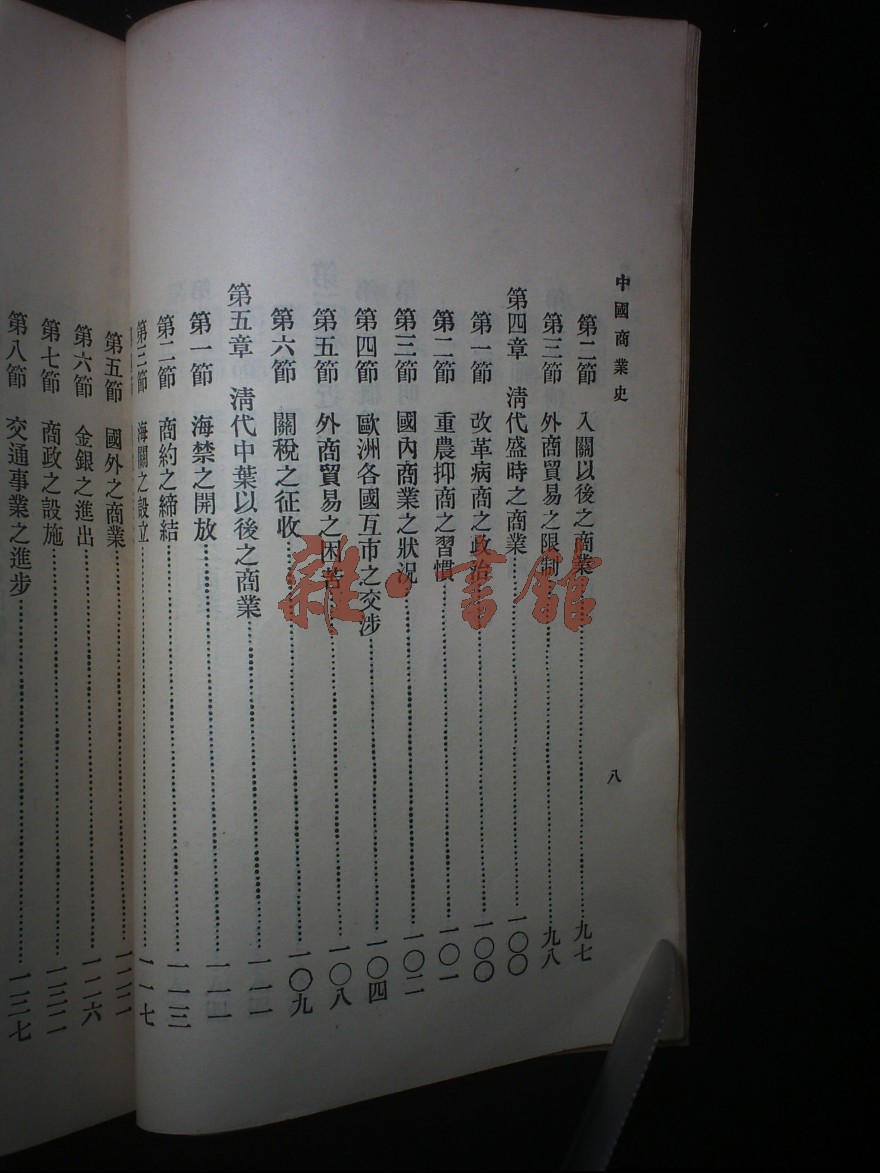 中國商業史
八
第二節 入關以後之商業……九七
第三節 外商貿易之限制……九八
第四章 淸代盛時之商業……一〇〇
第一節 改革病商之政治……一〇〇
第二節 重農抑商之習慣……一〇一
第三節 國內商業之狀況……一〇二
第四節 歐洲各國互市之交涉……一〇四
第五節 外商貿易之困苦……一〇八
第六節 關稅之征收……一〇九
第五章 淸代中葉以後之商業……一一一
第一節 海禁之開放……一一一
第二節 商約之締結……一一三
第三節 海關之設立……一一七
第五節 國外之商業……一二二
第六節 金銀之進出……一二六
第七節 商政之設施……一三二
第八節 交通事業之進步……一三七
雜·書館